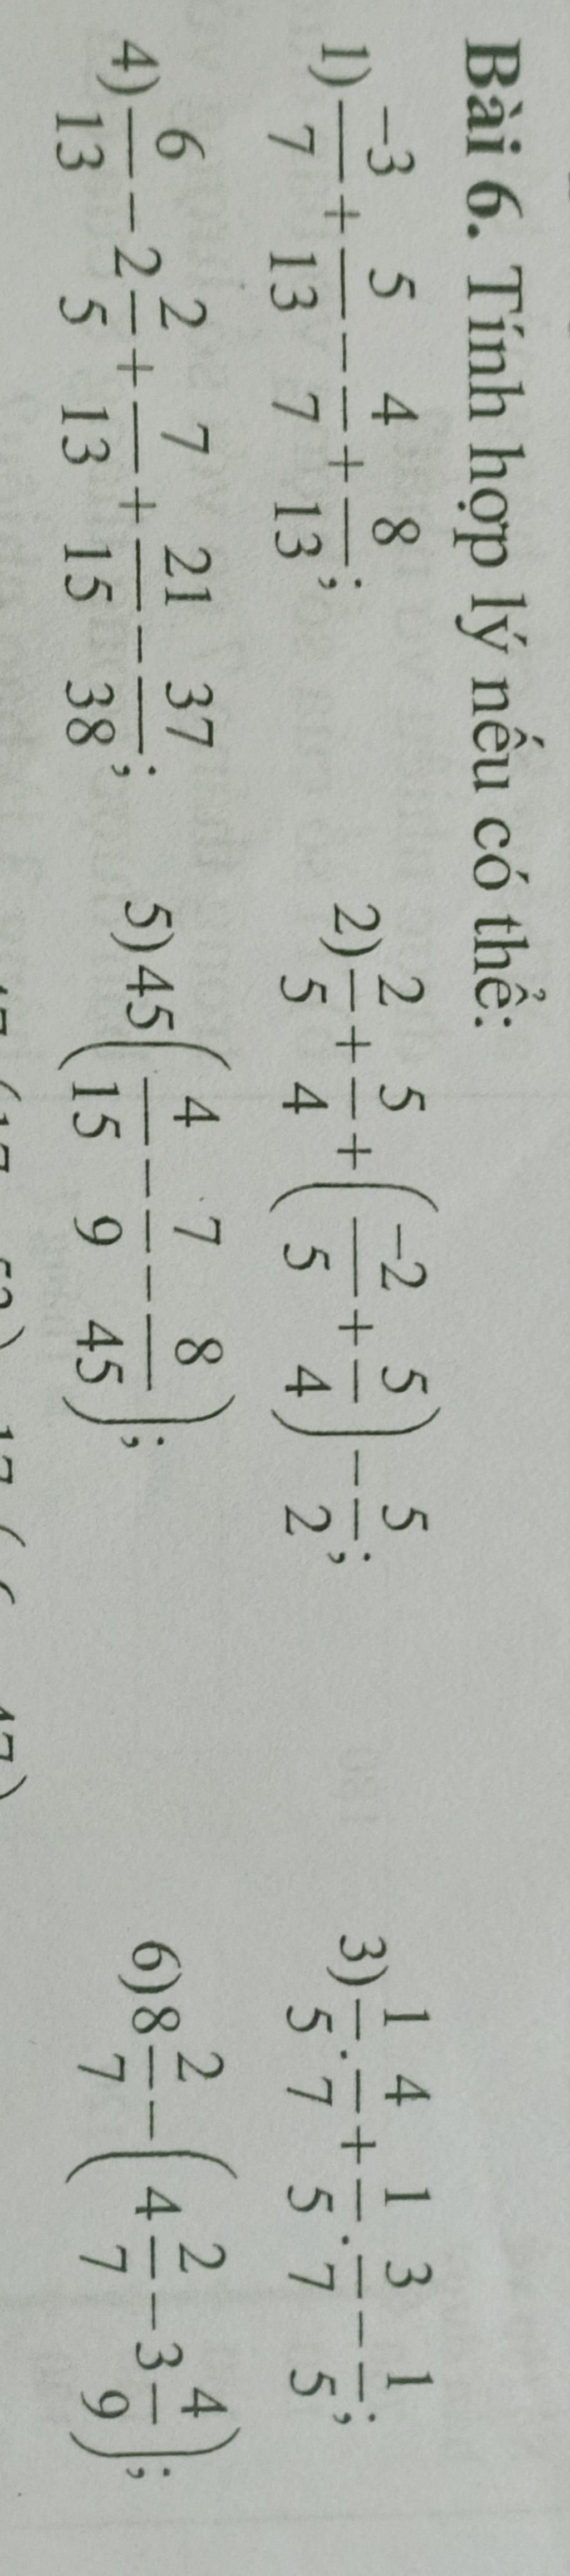 Bài 6. Tính hợp lý nếu có thể:
1) −3/7 + 5/13 − 4/7 + 8/13; 2) 2/5 + 5/4 + (−2/5 + 5/4) − 5/2; 3) 1/5 . 4/7 + 1/5 . 3/7 − 1/5;
4) 6/13 − 2 2/5 + 7/13 + 21/15 − 37/38; 5) 45(4/15 − 7/9 − 8/45); 6) 8 2/7 − (4 2/7 − 3 4/9);